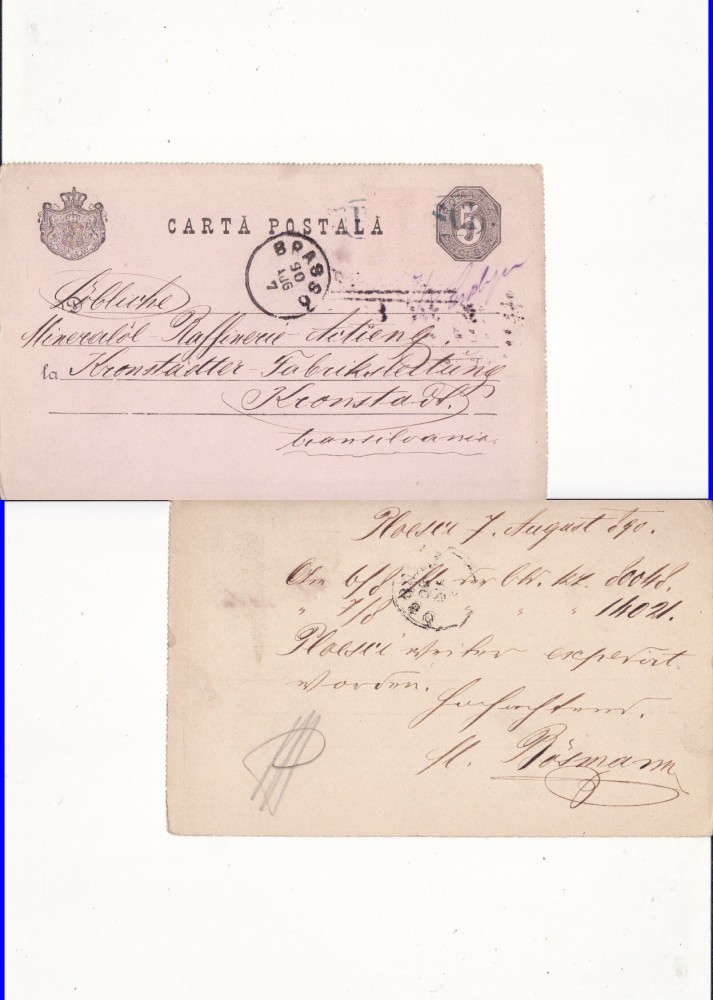 CARTĂ POSTALĂ
5
BRASSÓ
90
AUG
7
Löbliche
Mineralöl-Raffinerie Actieng.
la Kronstädter Fabriksleitung
Kronstadt.
transilvania.
Ploesci 7. August 890.
6/8 der Ctr. kz. 80048.
" 7/8 " " " 14021.
Ploesci weiter expediert
worden.
Hochachtend.
Rösmann